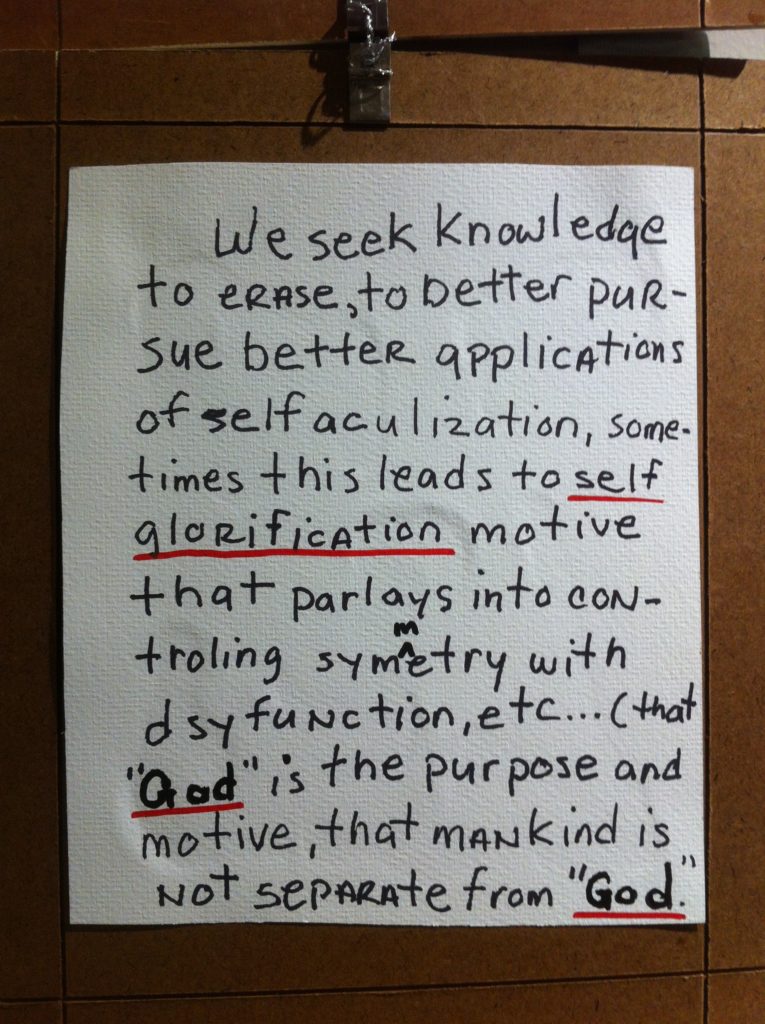 We seek knowledge
to erase, to better pur-
sue better applications
of self aculization, some-
times this leads to self
glorification motive
that parlays into con-
troling symmetry with
dsyfunction, etc... (that
"God" is the purpose and
motive, that mankind is
not separate from "God."